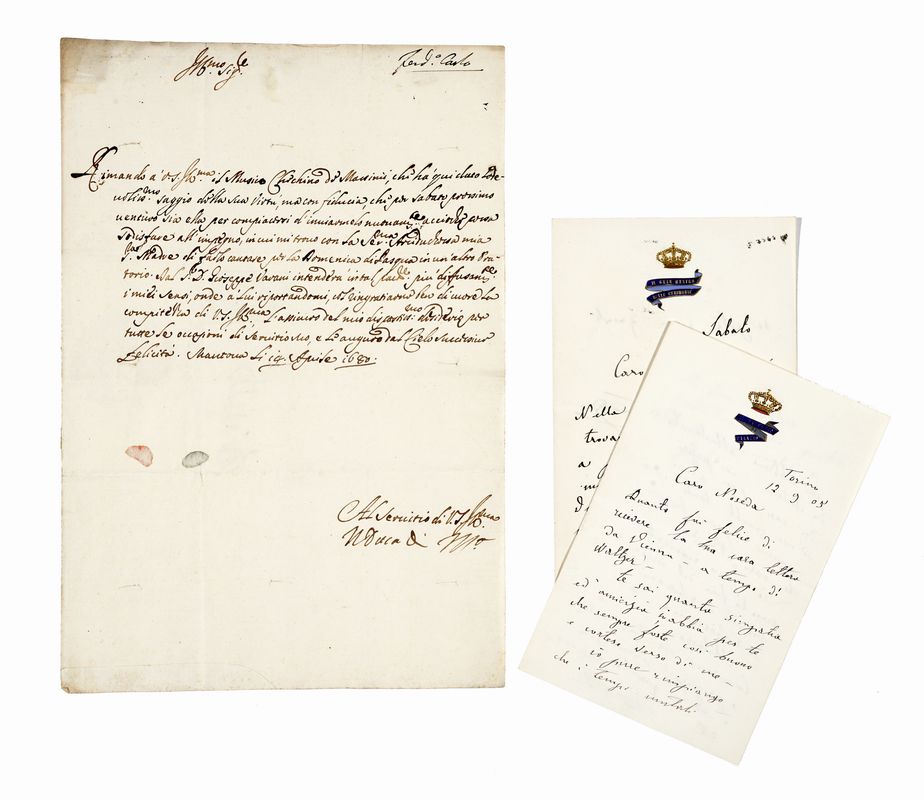 Ill.mo Sig.re
Ferd.o Carlo
Rimando a V.S. Ill.ma il Musico Checchino de Massimi, che ha qui dato lode-
volis.mo saggio della sua Virtù, ma con fiducia, che per Sabato prossimo
venturo sia ella per compiacersi d'inviarmelo
sodisfare all'impegno, in cui mi trovo con la Ser.ma Arciduchessa mia
Sig.ra Madre di farlo cantare per la Domenica di Pasqua in un'altro Ora-
torio. Dal P. D. Gioseppe Varani intenderà più diffusam.te
i miei sensi, onde a lui riportandomi, ringratiarne ben di cuore la
compitezza di V.S. Ill.ma l'assicuro del mio desiderio per
tutte le occasioni di servitio suo, e le auguro dal Cielo
felicità. Mantova li 14 Aprile 1680.
Al Servitio di V.S. Ill.ma
Il Duca di
Sabato
Caro
Nella
trova
a
Torino
12 9 05
Caro Noseda
Quanto fui felice di
ricevere la tua cara lettera
da Vienna - a tempo di
Waltzer -
Te sai quanta simpatia
ed amicizia m'abbia per te
che sempre foste così buono
e cortese verso di me -
io pure rimpiango
che i tempi mutati